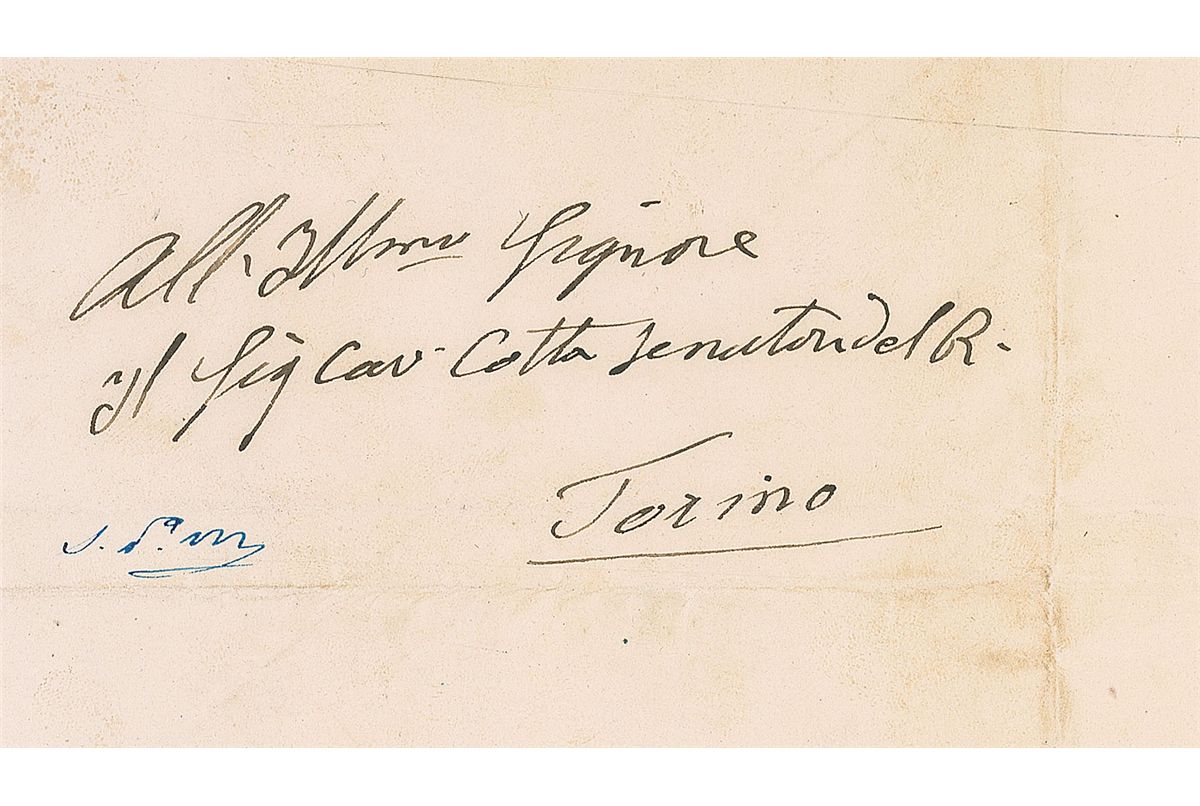 All'Illmo Signore
Il Sig Cav. Cotta Senatore del R.
Torino